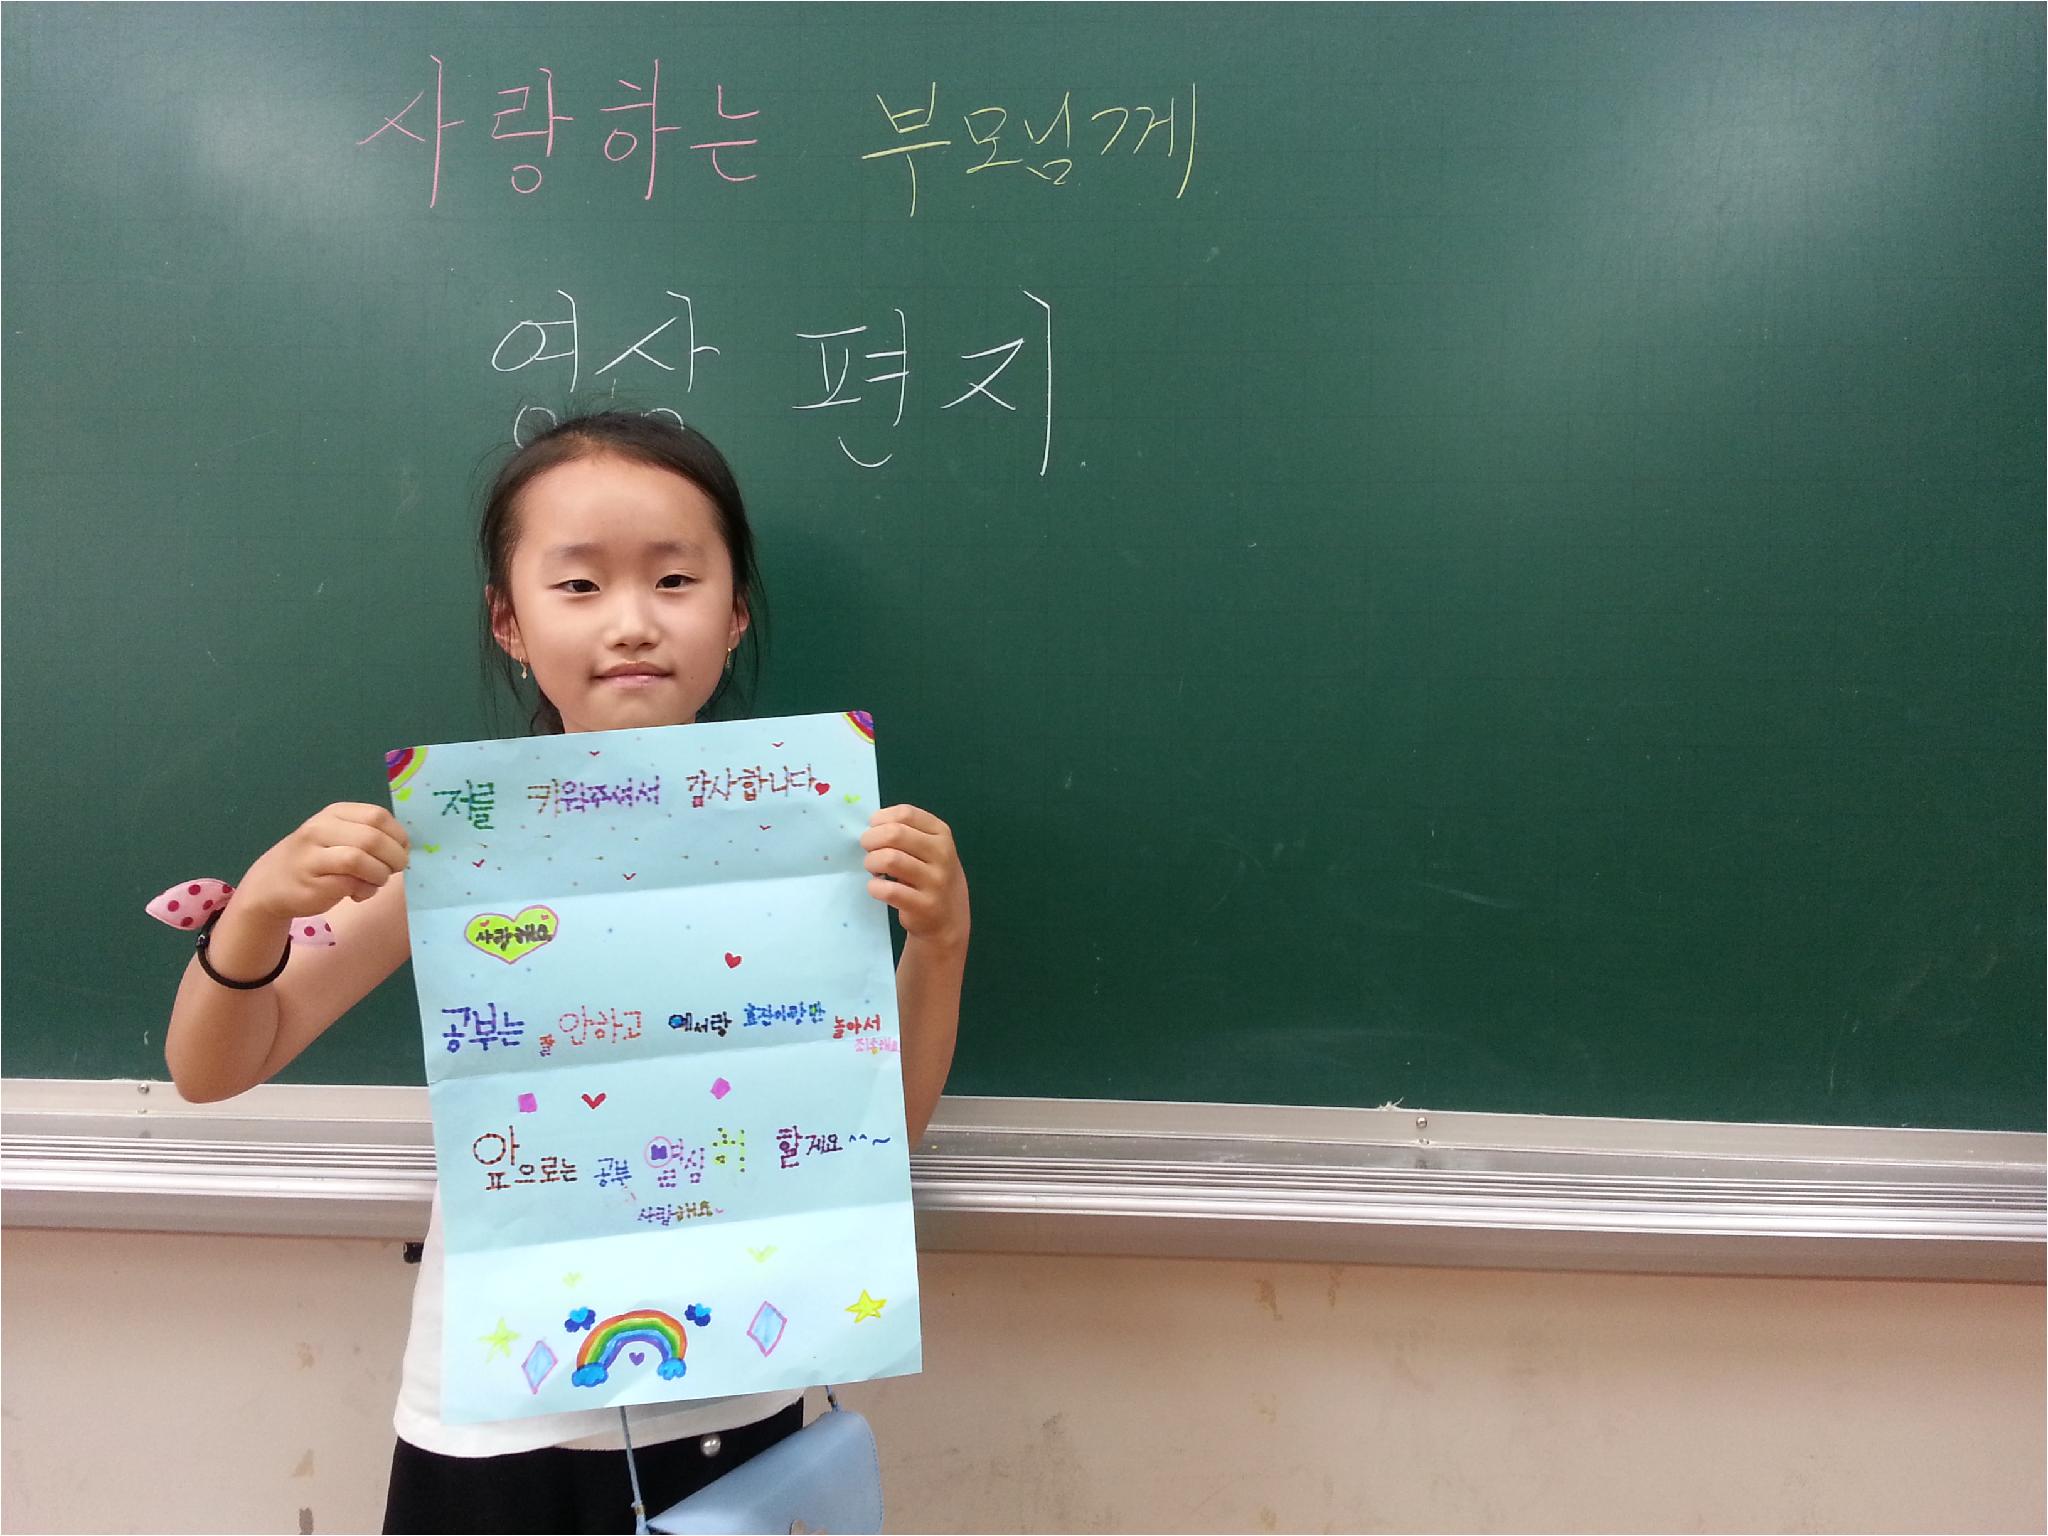 사랑하는 부모님께
영상 편지
저를 키워주셔서 감사합니다
사랑해요
공부는 잘 안하고 예서랑 효진이랑만 놀아서
죄송해요
앞으로는 공부 열심히 할게요^^~
사랑해요